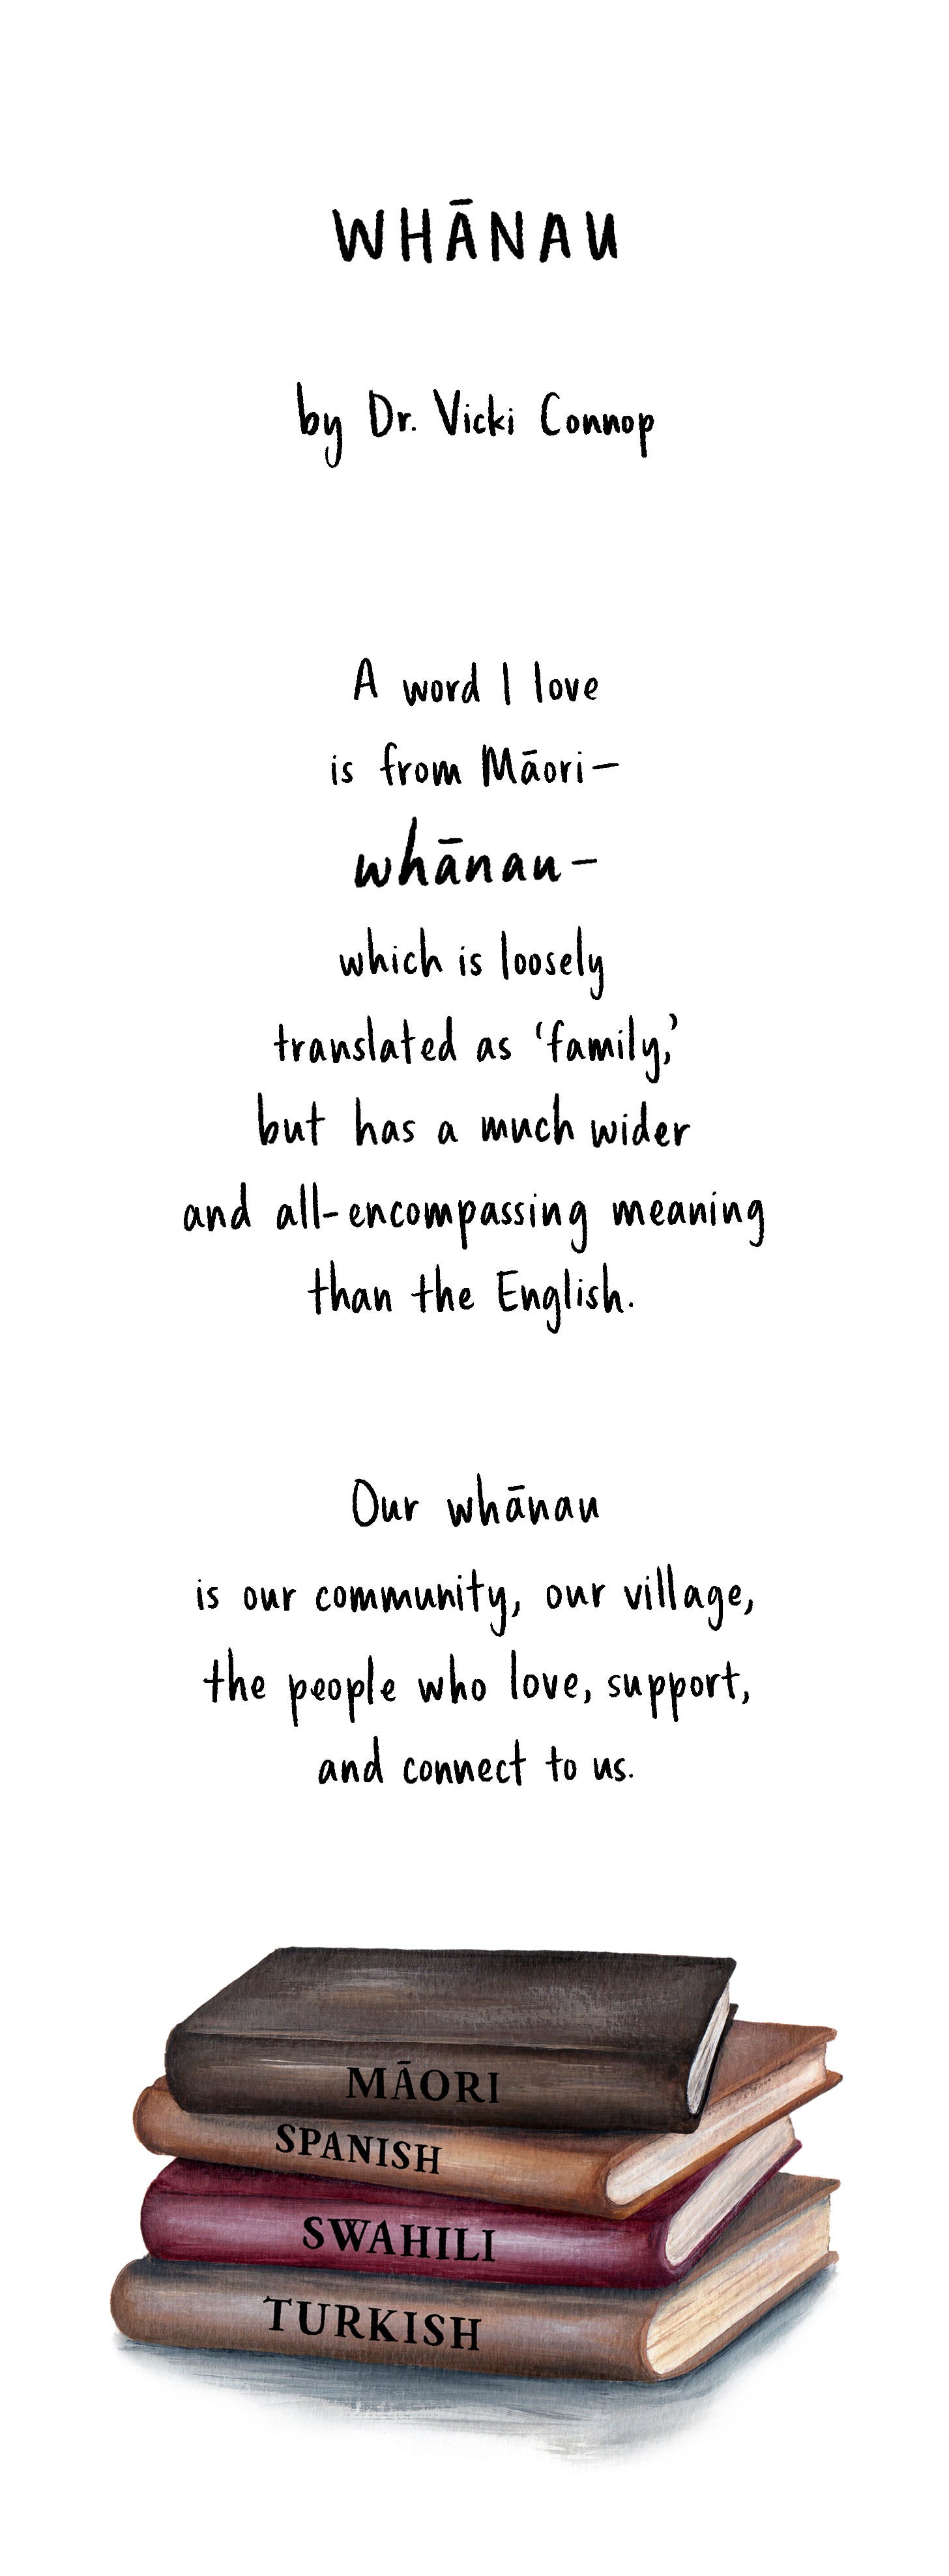 WHĀNAU
by Dr. Vicki Connop
A word I love
is from Māori—
whānau—
which is loosely
translated as ‘family,’
but has a much wider
and all-encompassing meaning
than the English.
Our whānau
is our community, our village,
the people who love, support,
and connect to us.
MĀORI
SPANISH
SWAHILI
TURKISH